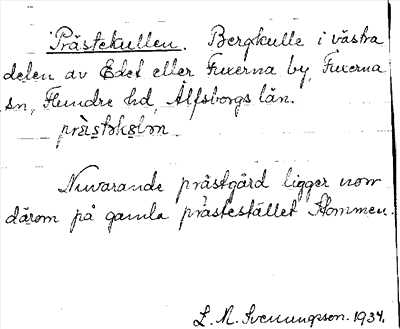 Prästekullen. Bergkulle i västra
delen av Edet eller Fuxerna by, Fuxerna
sn, Flundre hd, Älfsborgs län.
Nuvarande prästgård ligger norr
därom på gamla prästestället Stommen.
L. M. Svenungsson. 1934.